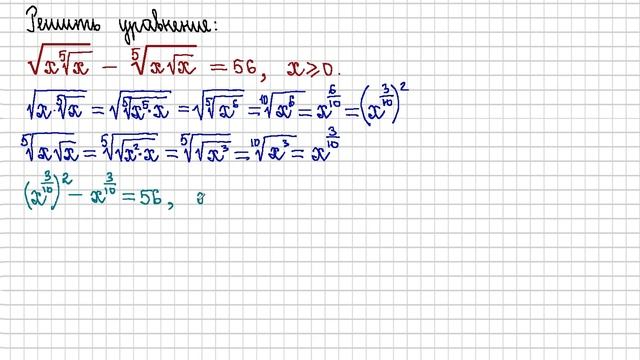 Решить уравнение:
√(x ⁵√x) − ⁵√(x√x) = 56, x ⩾ 0.
√(x·⁵√x) = √(⁵√(x⁵·x)) = √(⁵√(x⁶)) = ¹⁰√(x⁶) = x^(6/10) = (x^(3/10))²
⁵√(x√x) = ⁵√(√(x²·x)) = ⁵√(√(x³)) = ¹⁰√(x³) = x^(3/10)
(x^(3/10))² − x^(3/10) = 56,